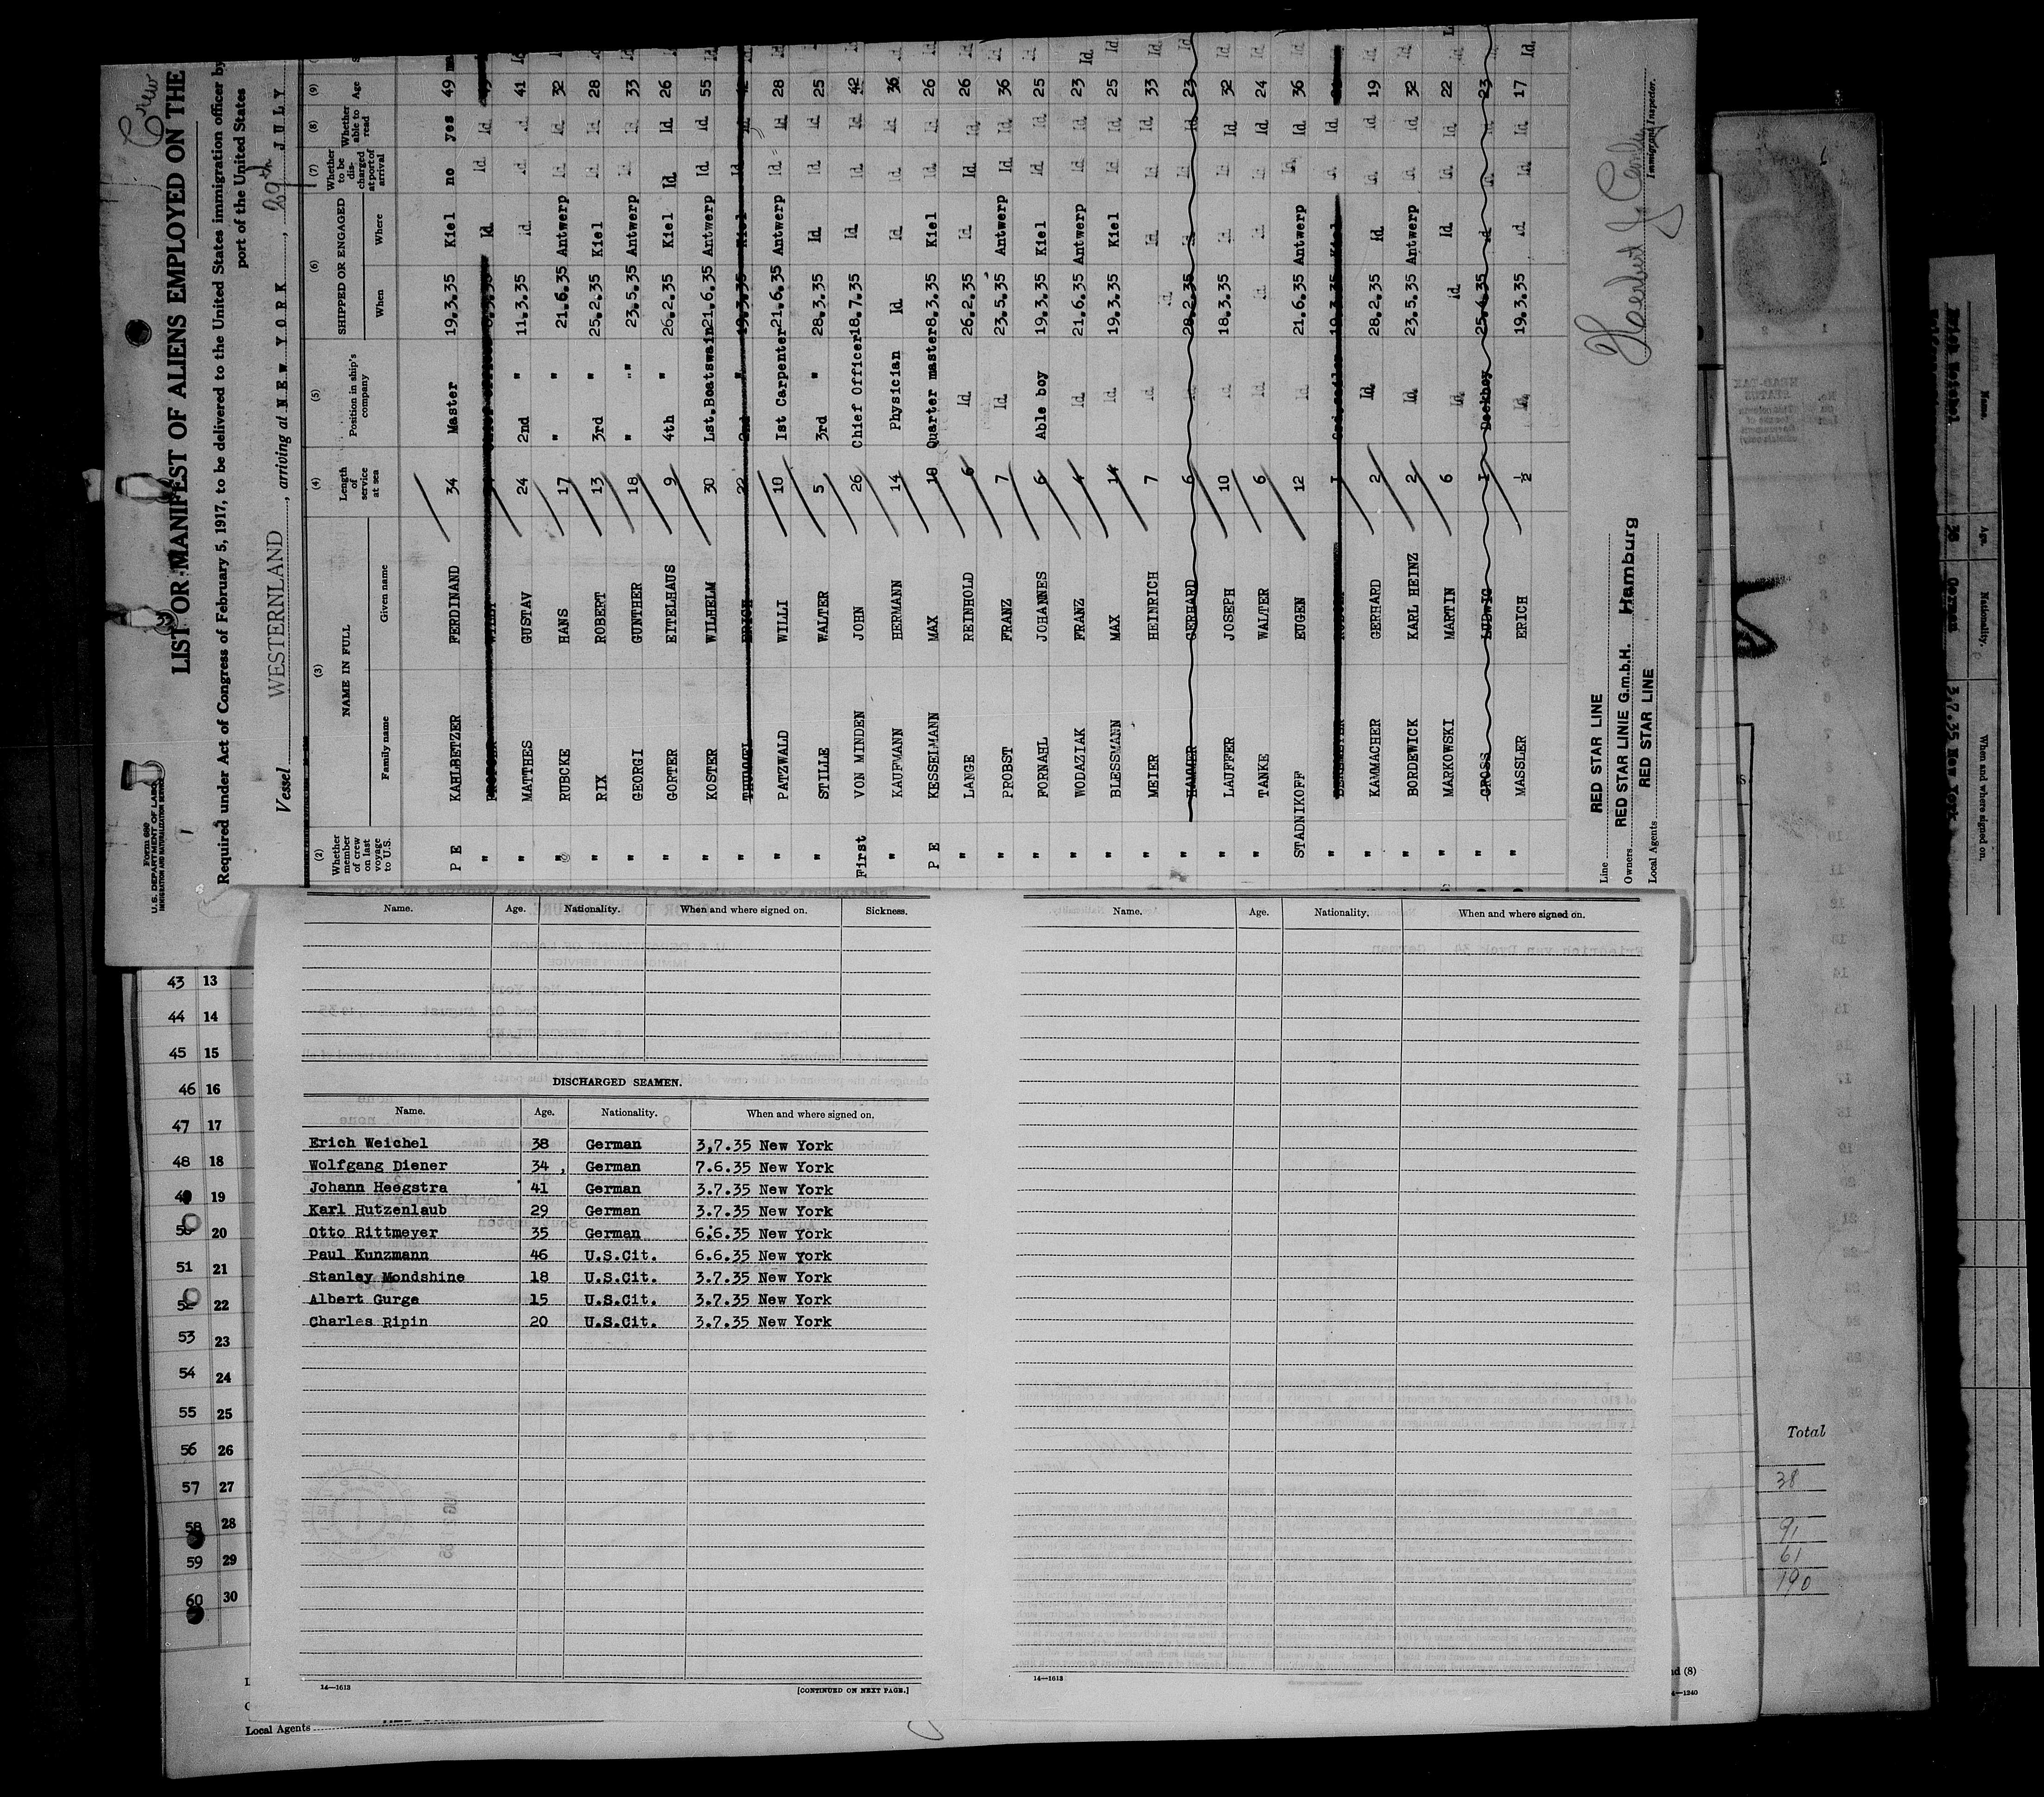 Crew
Form 689
U. S. DEPARTMENT OF LABOR
IMMIGRATION AND NATURALIZATION SERVICE
LIST OR MANIFEST OF ALIENS EMPLOYED ON THE
Required under Act of Congress of February 5, 1917, to be delivered to the United States immigration officer by
port of the United States
Vessel WESTERNLAND, arriving at NEW YORK, 29th JULY
(2) (3) (4) (5) (6) (7) (8) (9)
Whether member of crew on last voyage to U.S. NAME IN FULL Family name Given name Length of service at sea Position in ship's company SHIPPED OR ENGAGED When Where Whether to be discharged at port of arrival Whether able to read Age
P E KAHLBETZER FERDINAND 34 Master 19.3.35 Kiel no yes 49
" Id. Id. Id.
" MATTHES GUSTAV 24 2nd " 11.3.35 Id. Id. Id. 41 Id
" RUBCKE HANS 17 " " 21.6.35 Antwerp Id. Id. 32 Id
" RIX ROBERT 13 3rd " 25.2.35 Kiel Id. Id. 28 Id
" GEORGI GUNTHER 18 " " 23.5.35 Antwerp Id. Id. 33 Id
" GORTER EITELHAUS 9 4th " 26.2.35 Kiel Id. Id. 26 Id
" KOSTER WILHELM 30 Lst.Boatswain 21.6.35 Antwerp Id. Id. 55 Id
" THUMMEL ERICH 22 2nd " 19.3.35 Kiel Id. Id. 42
" PATZWALD WILLI 10 Ist Carpenter 21.6.35 Antwerp Id. Id. 28 Id.
" STILLE WALTER 5 3rd " 28.3.35 Id. Id. Id. 25 Id.
First VON MINDEN JOHN 26 Chief Officer 18.7.35 Id. Id. Id. 42 Id.
" KAUFMANN HERMANN 14 Physician Id. Id. Id. Id. 36 Id.
P E KESSELMANN MAX 18 Quarter master 8.3.35 Kiel Id. Id. 26 Id.
" LANGE REINHOLD 6 Id. 26.2.35 Id. Id. Id. 26 Id.
" PROBST FRANZ 7 Id. 23.5.35 Antwerp Id. Id. 36 Id.
" FORNAHL JOHANNES 6 Able boy 19.3.35 Kiel Id. Id. 25 Id.
" WODAZIAK FRANZ 4 Id. 21.6.35 Antwerp Id. Id. 23 Id.
" BLESSMANN MAX 14 Id. 19.3.35 Kiel Id. Id. 25 Id.
" MEIER HEINRICH 7 Id. Id. Id. Id. Id. 33 Id.
" HAMMER GERHARD 6 Id. 28.2.35 Id. Id. Id. 23 Id
" LAUFFER JOSEPH 10 Id. 18.3.35 Id. Id. Id. 32 Id.
" TANKE WALTER 6 Id. Id. Id. Id. Id. 24 Id.
STADNIKOFF EUGEN 12 Id. 21.6.35 Antwerp Id. Id. 36 Id.
" Id. Id.
" KAMMACHER GERHARD 2 Id. 28.2.35 Id. Id. Id. 19 Id.
" BORDEWICK KARL HEINZ 2 Id. 23.5.35 Antwerp Id. Id. 32 Id.
" MARKOWSKI MARTIN 6 Id. Id. Id. Id. Id. 22 Id.
" GROSS LUDWIG Deckboy 25.4.35 Id. Id. Id. 23 Id.
" MASSLER ERICH ½ Id. 19.3.35 Id. Id. Id. 17 Id.
Line RED STAR LINE
Owners RED STAR LINIE G.m.b.H. Hamburg
Local Agents RED STAR LINE
Immigrant Inspector.
Name. Age. Nationality. When and where signed on. Sickness.
DISCHARGED SEAMEN.
Name. Age. Nationality. When and where signed on.
Erich Weichel 38 German 3,7.35 New York
Wolfgang Diener 34 , German 7.6.35 New York
Johann Heegstra 41 German 3.7.35 New York
Karl Hutzenlaub 29 German 3.7.35 New York
Otto Rittmeyer 35 German 6.6.35 New York
Paul Kunzmann 46 U.S.Cit. 6.6.35 New York
Stanley Mondshine 18 U.S.Cit. 3.7.35 New York
Albert Gurge 15 U.S.Cit. 3.7.35 New York
Charles Ripin 20 U.S.Cit. 3.7.35 New York
14—1613
[CONTINUED ON NEXT PAGE.]
Name. Age. Nationality. When and where signed on.
14—1613
43 13
44 14
45 15
46 16
47 17
48 18
49 19
50 20
51 21
52 22
53 23
54 24
55 25
56 26
57 27
58 28
59 29
60 30
Local Agents
Total
38
91
61
190
nd (8)
4—1240
Name. Age. Nationality. When and where signed on.
Erich Weichel 38 German 3.7.35 New York